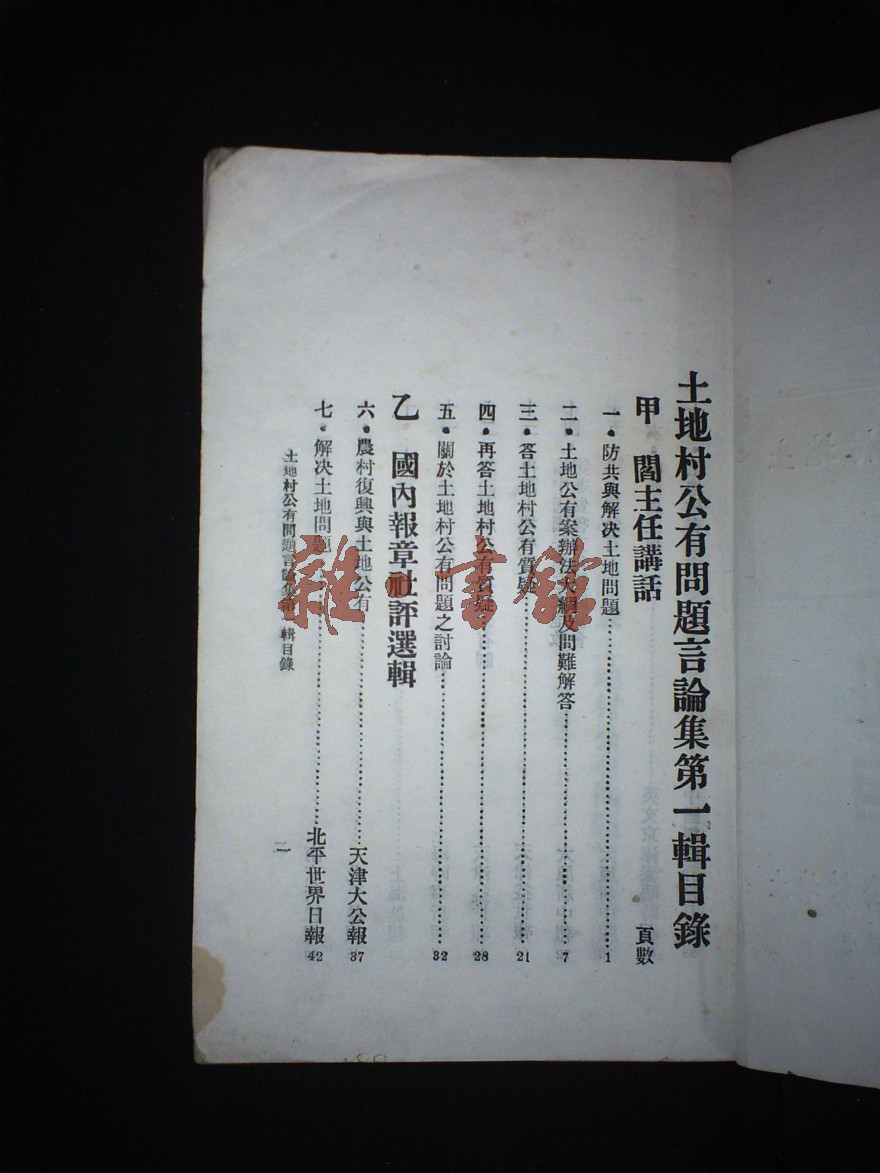 土地村公有問題言論集第一輯目錄
甲 閻主任講話 頁數
一・防共與解决土地問題……1
二・土地公有案辦法大綱及問難解答……7
三・答土地村公有質疑……21
四・再答土地村公有質疑……28
五・關於土地村公有問題之討論……32
乙 國內報章社評選輯
六・農村復興與土地公有……天津大公報 37
七・解决土地問題……北平世界日報 42
土地村公有問題言論集第一輯目錄
雜・書館